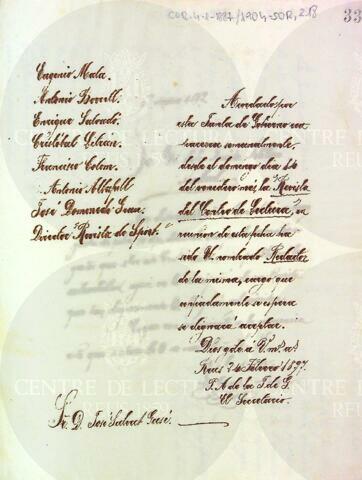 COR.4-1-1887/1904-SOR, 2.18
33
Eugenio Mata.
Antonio Borrell.
Enrique Salvadó.
Cristóbal
Francisco Colom.
Antonio Albafull
José Domenech
Director "Revista de Sport".
Acordado por
esta Junta de Gobierno con
semanalmente,
desde el domingo día 14
del venidero mes, la "Revista
del Centro de Lectura", en
reunión de esta fecha ha
sido V. nombrado Redactor
de la misma, cargo que
confiadamente se espera
se dignará aceptar.
Dios gde a V. ms. as
Reus Febrero 1897.
P. A. de la J. de G.
El Secretario.
Sr. D. José
CENTRE DE LECTURA